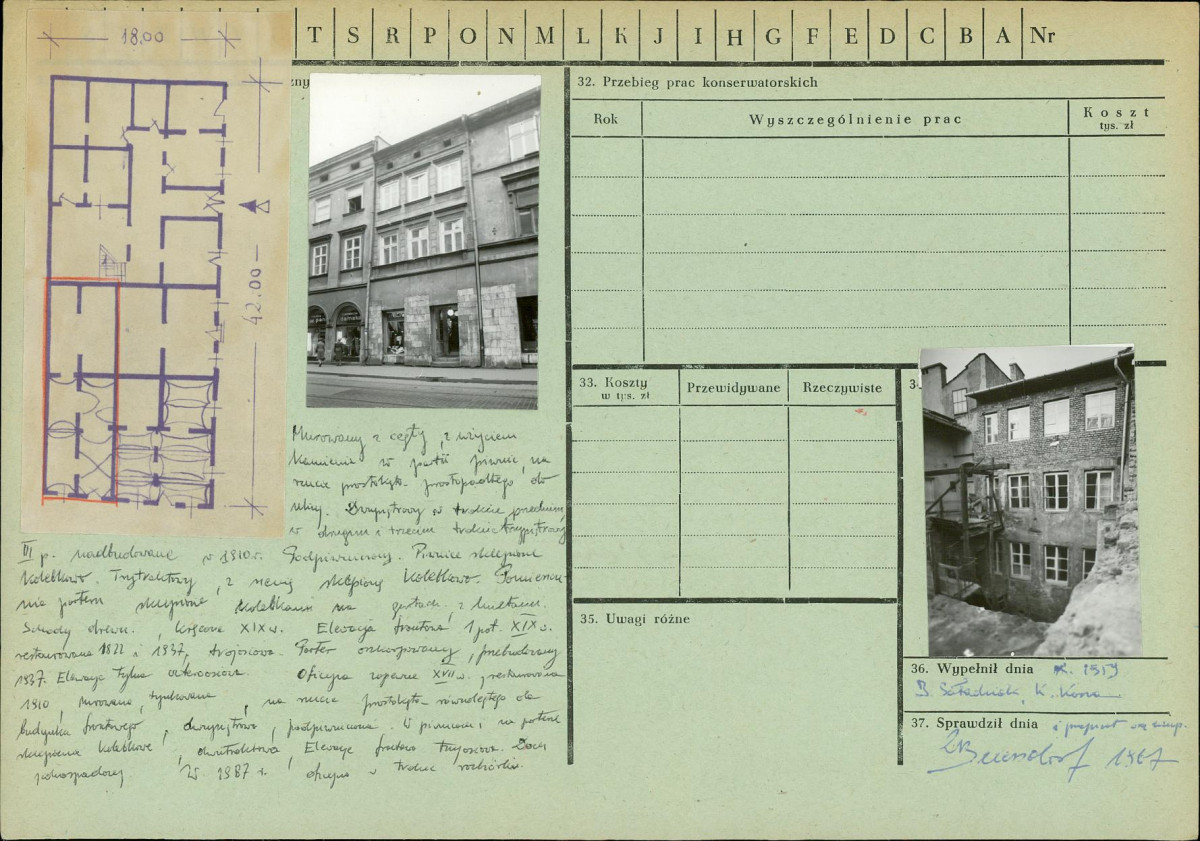 18.00
T S R P O N M L K J I H G F E D C B A Nr
42.00
zny
Murowany z cegły, z użyciem
kamienia w partii piwnic, na
rzucie prostokąta prostopadłego do
ulicy. Dwupiętrowy w trakcie przednim,
w drugim i trzecim trakcie trzypiętrowy
III p. nadbudowane w 1910 r. Podpiwniczony. Piwnice sklepione
kolebkowo. Trzytraktowy, z sienią sklepioną kolebkowo. Pomieszcze-
nia parteru sklepione kolebkami na gurtach, z lunetami.
Schody drewn., kręcone XIX w. Elewacja frontowa 1 poł. XIX w.
restaurowana 1822 i 1937, trójosiowa. Parter przebudowany
1937. Elewacja tylna czteroosiowa. Oficyna zapewne XVII w., restaurowana
1910, murowana, tynkowana, na rzucie prostokąta równoległego do
budynku frontowego, dwupiętrowa, podpiwniczona. W piwnicach i na parterze
sklepienia kolebkowe, dwutraktowa, Elewacja frontowa trójosiowa. Dach
pulpitowy W 1987 r. oficyna w trakcie rozbiórki.
32. Przebieg prac konserwatorskich
Rok
Wyszczególnienie prac
Koszt
tys. zł
33. Koszty
w tys. zł
Przewidywane
Rzeczywiste
3
35. Uwagi różne
36. Wypełnił dnia
37. Sprawdził dnia